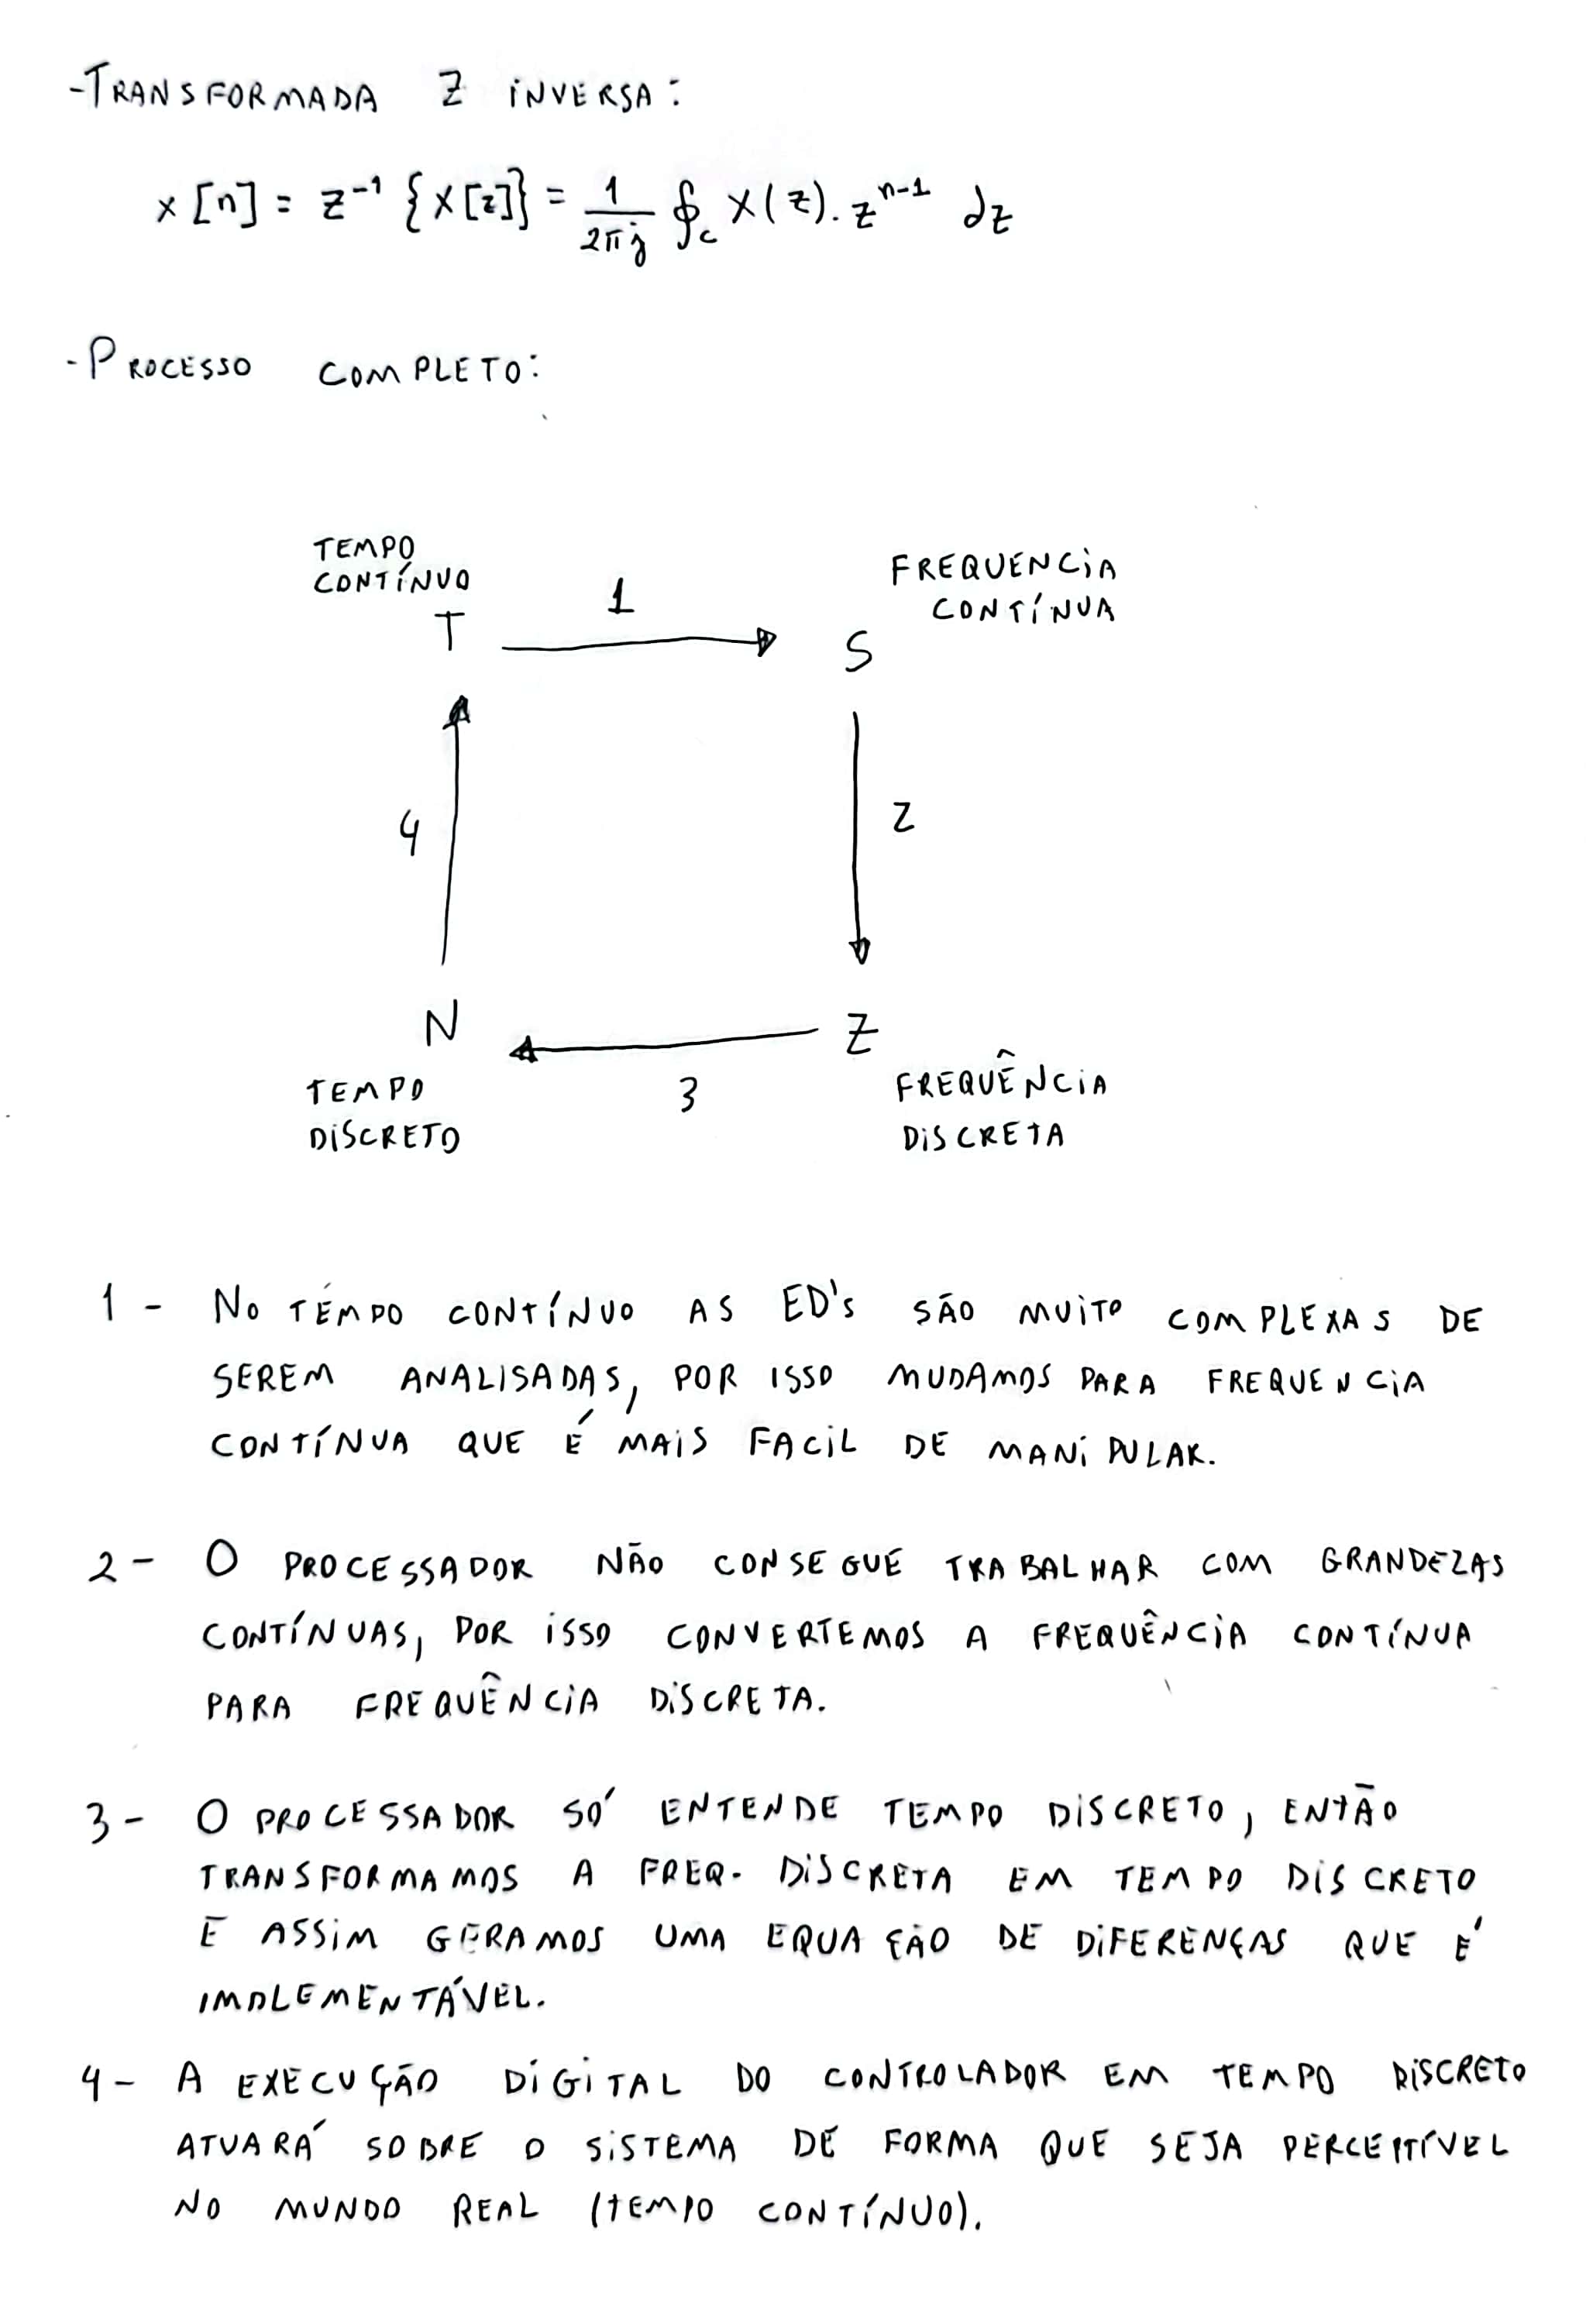 -TRANSFORMADA Z INVERSA:
x[n] = z⁻¹ {X[z]} = 1/2πj ∮c X(z). z^(n-1) dz
-PROCESSO COMPLETO:
TEMPO
CONTÍNUO
FREQUENCIA
CONTÍNUA
T
1
S
4
2
N
Z
3
TEMPO
DISCRETO
FREQUÊNCIA
DISCRETA
1 - NO TEMPO CONTÍNUO AS ED'S SÃO MUITO COMPLEXAS DE
SEREM ANALISADAS, POR ISSO MUDAMOS PARA FREQUENCIA
CONTÍNUA QUE É MAIS FACIL DE MANIPULAR.
2 - O PROCESSADOR NÃO CONSEGUE TRABALHAR COM GRANDEZAS
CONTÍNUAS, POR ISSO CONVERTEMOS A FREQUÊNCIA CONTÍNUA
PARA FREQUÊNCIA DISCRETA.
3 - O PROCESSADOR SÓ ENTENDE TEMPO DISCRETO, ENTÃO
TRANSFORMAMOS A FREQ. DISCRETA EM TEMPO DISCRETO
E ASSIM GERAMOS UMA EQUAÇÃO DE DIFERENÇAS QUE É
IMPLEMENTÁVEL.
4 - A EXECUÇÃO DIGITAL DO CONTROLADOR EM TEMPO DISCRETO
ATUARÁ SOBRE O SISTEMA DE FORMA QUE SEJA PERCEPTÍVEL
NO MUNDO REAL (TEMPO CONTÍNUO).